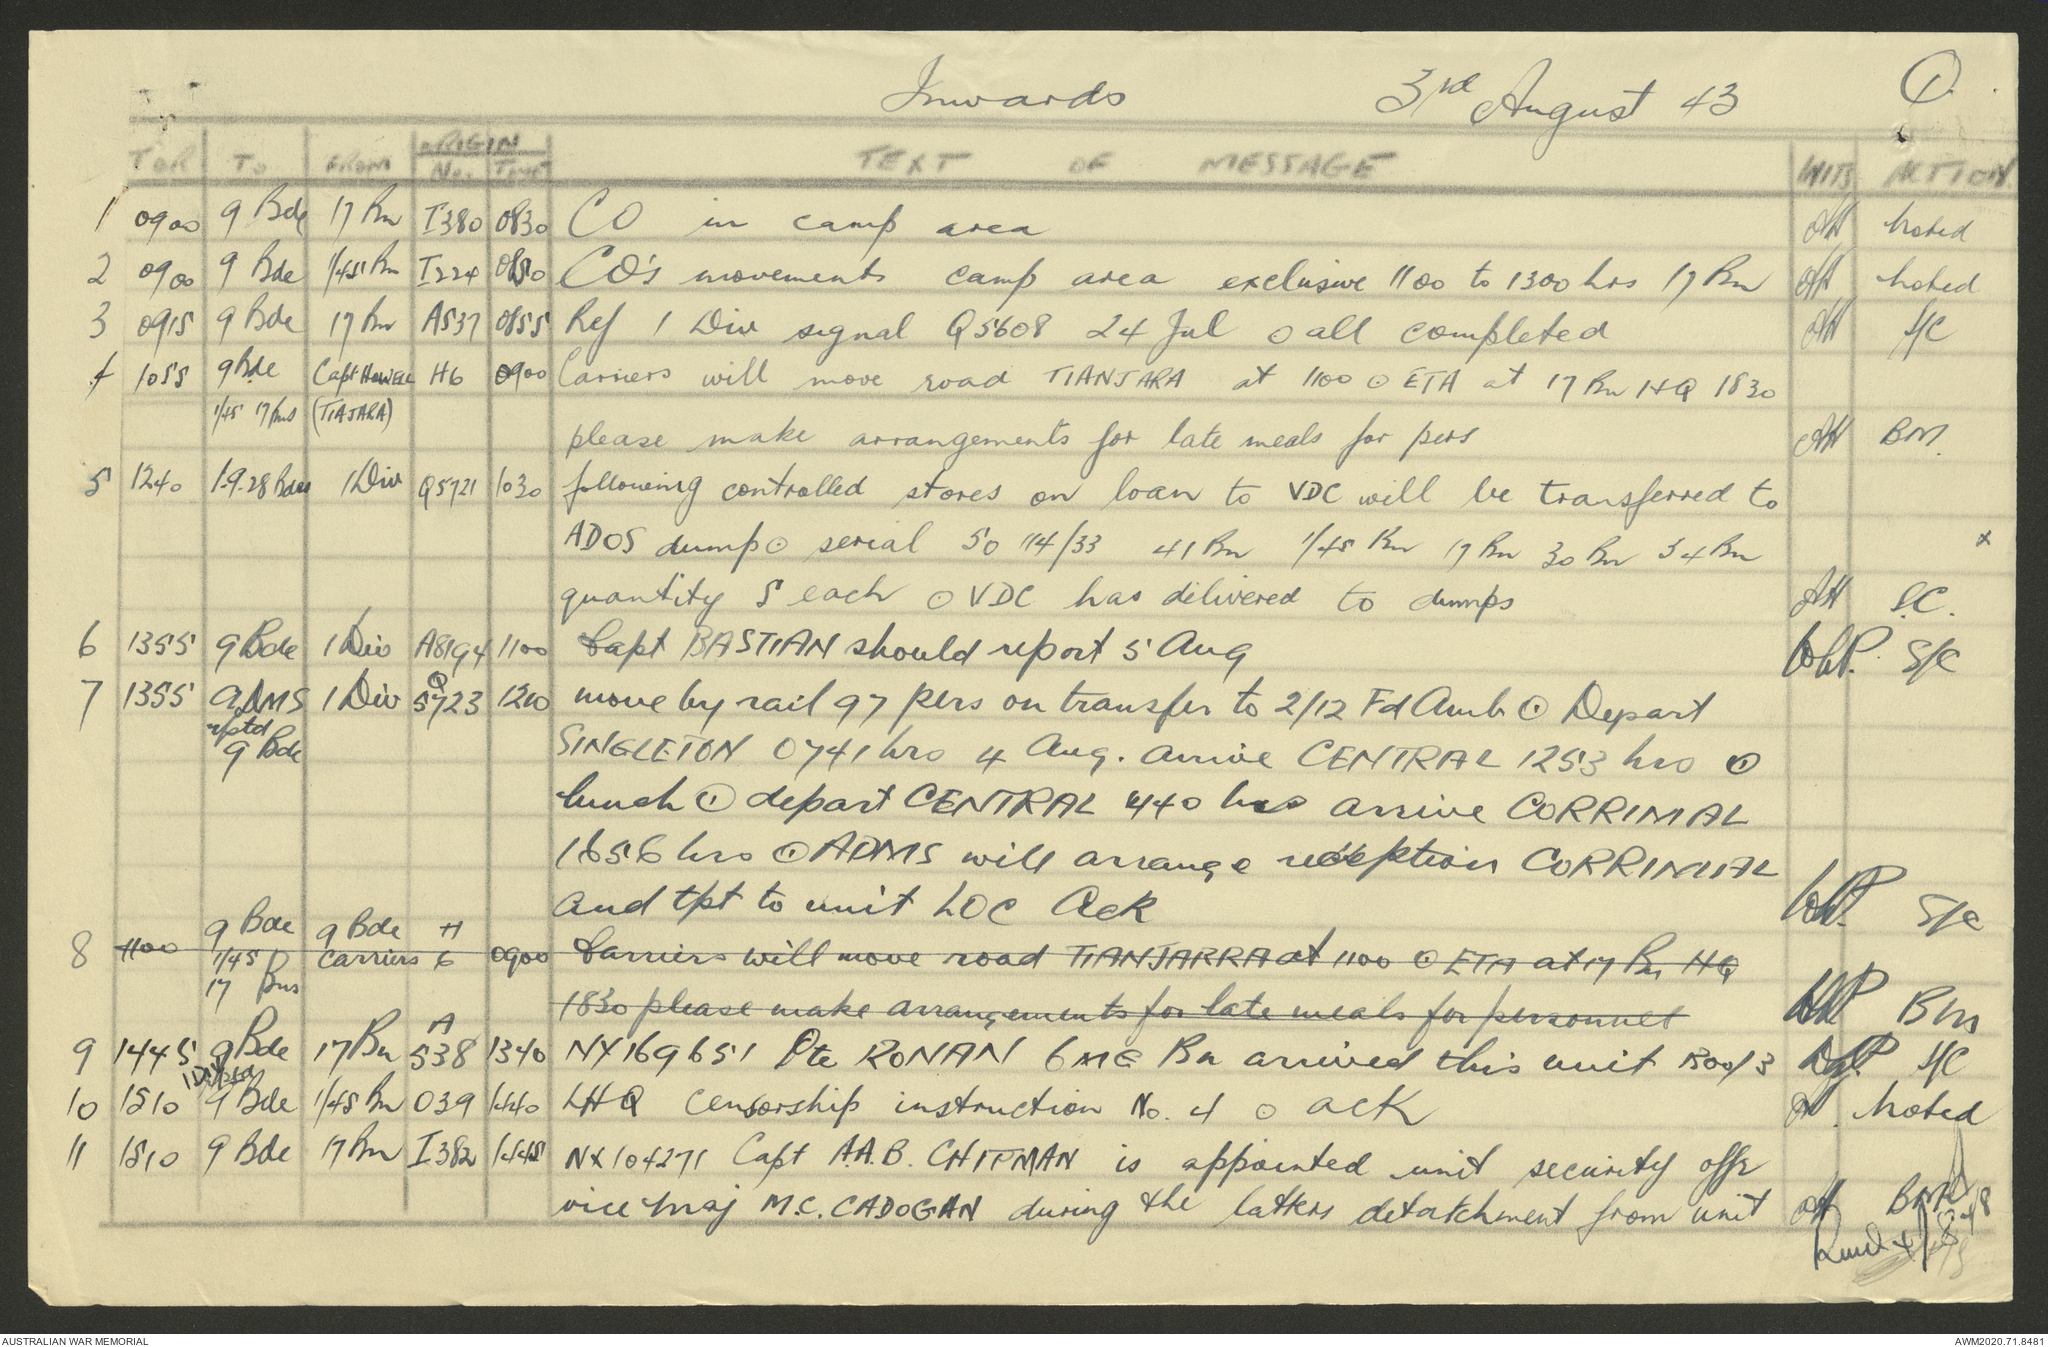 Inwards 3rd August 43 1.
TOR TO FROM ORIGIN No. TIME TEXT OF MESSAGE INITS ACTION
1 0900 9 Bde 17 Bn I380 0830 CO in camp area AH Noted
2 0900 9 Bde 1/45 Bn I224 0850 CO's movements camp area exclusive 1100 to 1300 hrs 17 Bn AH Noted
3 0915 9 Bde 17 Bn A537 0855 Ref 1 Div signal Q5608 24 Jul o all completed AH S/C
4 1055 9 Bde Capt HOWELL H6 0900 Carriers will move road TIANJARA at 1100 ⊙ ETA at 17 Bn HQ 1830
1/45 17 Bns (TIAJARA)
please make arrangements for late meals for pers AH BM.
5 1240 1.9.28 Bdes 1 Div Q5721 1030 following controlled stores on loan to VDC will be transferred to
ADOS dump ⊙ serial 50 114/33 41 Bn 1/45 Bn 17 Bn 30 Bn 34 Bn x
quantity 5 each ⊙ VDC has delivered to dumps AH S.C.
6 1355 9 Bde 1 Div A8194 1100 Capt BASTIAN should report 5 Aug S/C
7 1355 ADMS 1 Div Q 5723 1210 move by rail 97 pers on transfer to 2/12 Fd Amb ⊙ Depart
rptd
9 Bde SINGLETON 0741 hrs 4 Aug. arrive CENTRAL 1253 hrs ⊙
lunch ⊙ depart CENTRAL 1440 hrs arrive CORRIMAL
1656 hrs ⊙ ADMS will arrange reception CORRIMAL
and tpt to unit LOC Ack S/C
8 1100 9 Bde 9 Bde H
1/45 carriers 6 0900 Carriers will move road TIANJARRA at 1100 ⊙ ETA at 17 Bn HQ
17 Bns
1830 please make arrangements for late meals for personnel BM
9 1445 9 Bde 17 Bn A 538 1340 NX169651 Pte RONAN 6 MG Bn arrived this unit 1300/3 S/C
1 Div rptd
10 1510 9 Bde 1/45 Bn O39 1440 LHQ censorship instruction No. 4 o ack AH. Noted
11 1510 9 Bde 17 Bn I382 1445 NX104271 Capt A.A.B. CHIPMAN is appointed unit security offr
vice Maj M.C. CADOGAN during the latters detatchment from unit AH BM
AUSTRALIAN WAR MEMORIAL AWM2020.71.8481